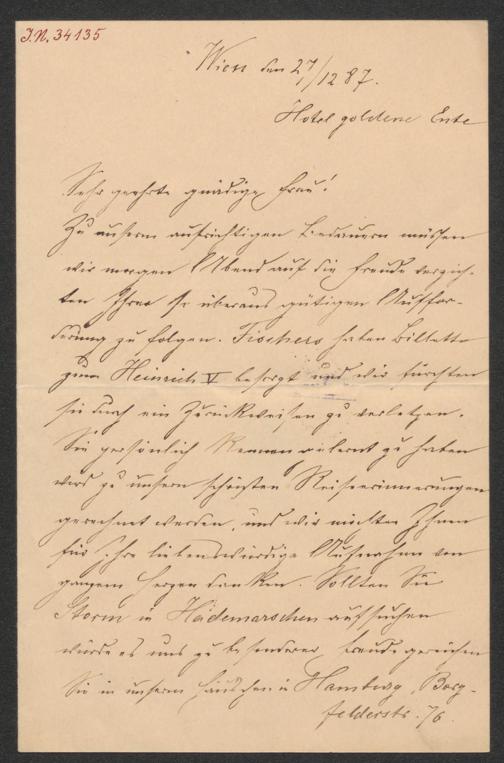 J.N. 34135
Wien den 27/12 87.
Hotel goldene Ente
Sehr geehrte gnädige Frau!
Zu unserm aufrichtigen Bedauern müssen
wir morgen Abend auf die Freude verzich-
ten Ihrer so überaus gütigen Auffor-
derung zu folgen. Fischers haben Billette
zum Heinrich V besorgt und wir fürchten
sie durch ein Zurückweisen zu verletzen.
Sie persönlich kennen gelernt zu haben
wird zu unsern schönsten Reiseerinnerungen
gerechnet werden, und wir möchten Ihnen
für Ihre liebenswürdige Aufnahme von
ganzem Herzen danken. Sollten Sie
Storm in Hademarschen aufsuchen
würde es uns zu besonderer Freude gereichen
Sie in unserm Häuschen in Hamburg, Borg-
felderstr. 76.